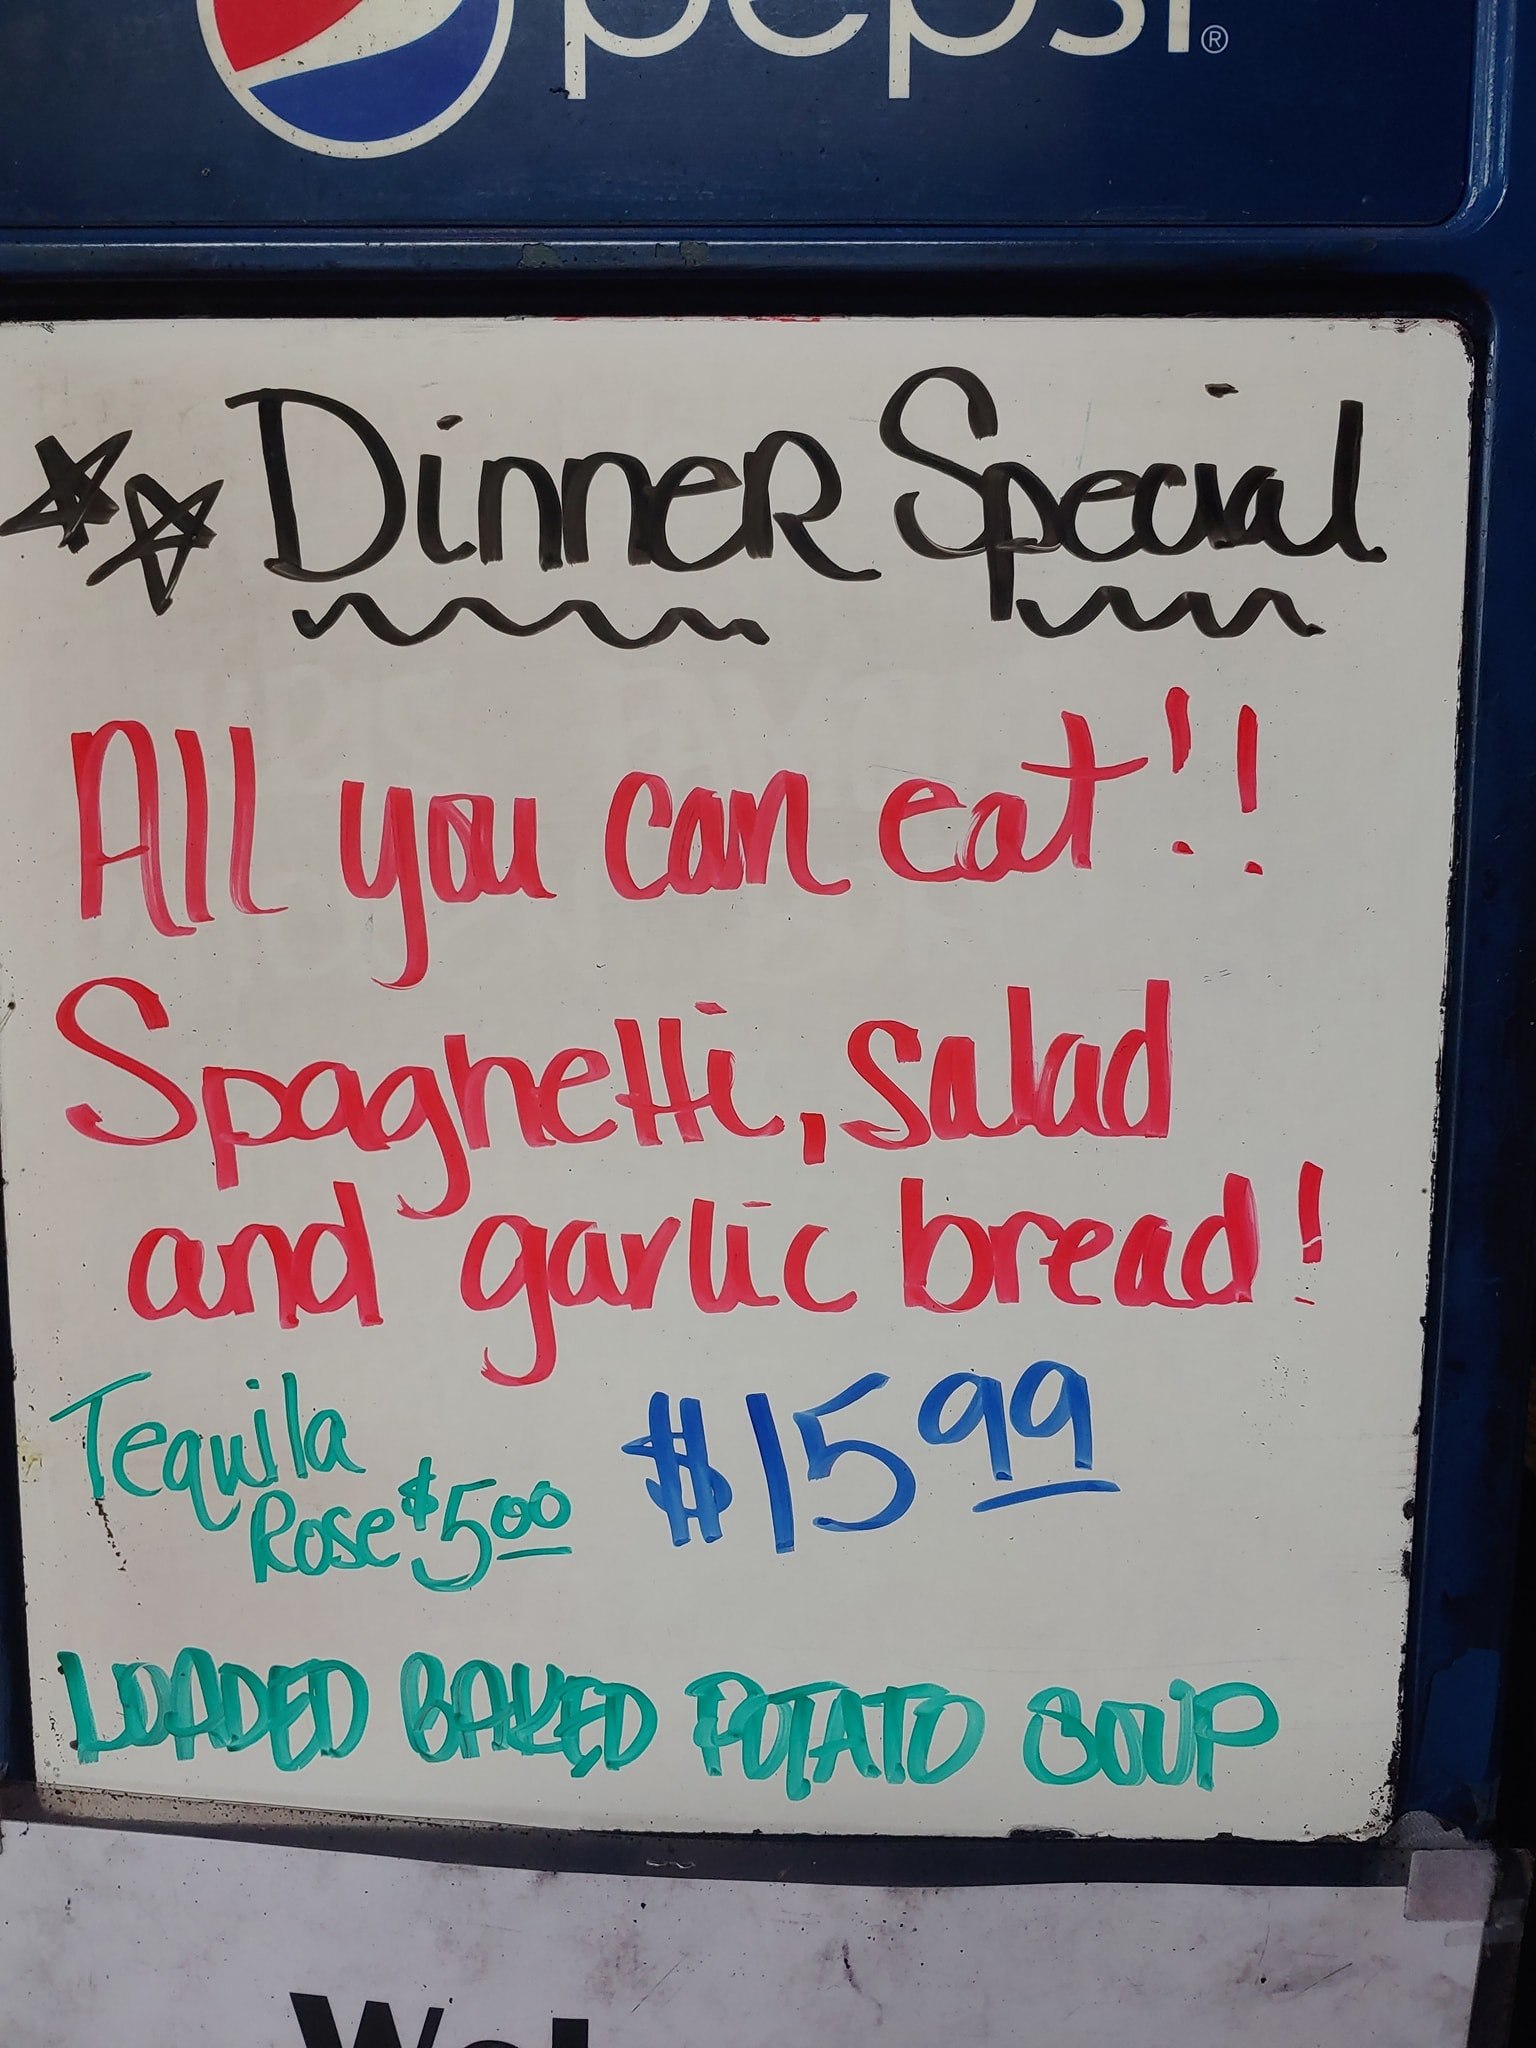 pepsi®
Dinner Special
All you can eat!!
Spaghetti, salad
and garlic bread!
Tequila
Rose $5.00
$15.99
LOADED BAKED POTATO SOUP